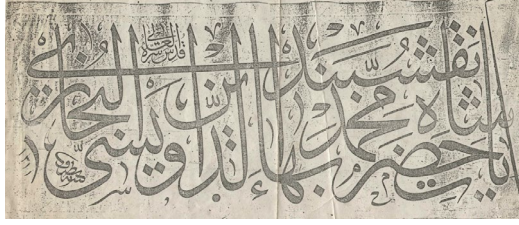 يا حضرت شاه نقشبند محمد بهاء الدين اويسى البخارى
قدس سره